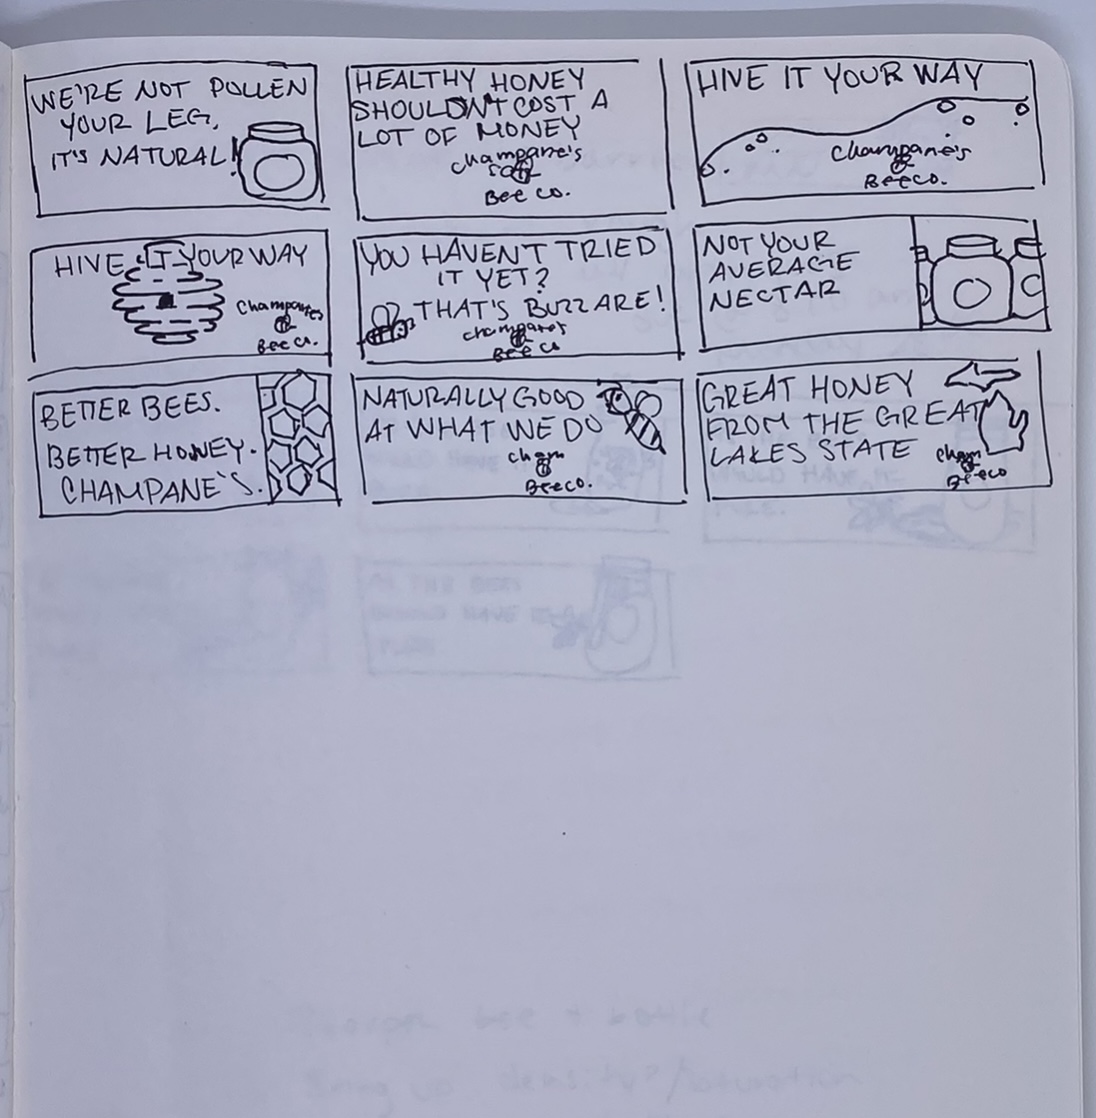 WE'RE NOT POLLEN
YOUR LEG,
IT'S NATURAL!
HEALTHY HONEY
SHOULDN'T COST A
LOT OF MONEY
Champane's
Bee Co.
HIVE IT YOUR WAY
Champane's
Bee Co.
HIVE IT YOUR WAY
Champanes
Bee Co.
YOU HAVEN'T TRIED
IT YET?
THAT'S BUZZARE!
Champanes
Bee Co
NOT YOUR
AVERAGE
NECTAR
BETTER BEES.
BETTER HONEY.
CHAMPANE'S.
NATURALLY GOOD
AT WHAT WE DO
Cham
Bee Co.
GREAT HONEY
FROM THE GREAT
LAKES STATE
Cham
Bee Co